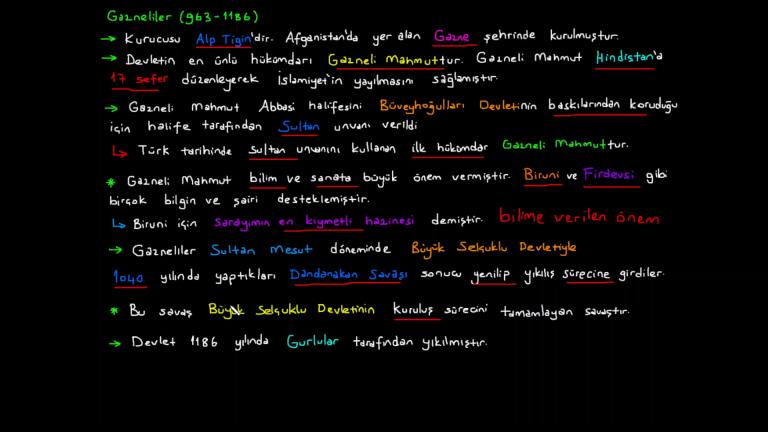 Gazneliler (963-1186)
→ Kurucusu Alp Tigin'dir. Afganistan'da yer alan Gazne şehrinde kurulmuştur.
→ Devletin en ünlü hükümdarı Gazneli Mahmuttur. Gazneli Mahmut Hindistan'a
17 sefer düzenleyerek İslamiyet'in yayılmasını sağlamıştır.
→ Gazneli Mahmut Abbasi halifesini Büveyhoğulları Devletinin baskılarından koruduğu
için halife tarafından Sultan unvanı verildi
↳ Türk tarihinde sultan unvanını kullanan ilk hükümdar Gazneli Mahmuttur.
* Gazneli Mahmut bilim ve sanata büyük önem vermiştir. Biruni ve Firdevsi gibi
birçok bilgin ve şairi desteklemiştir.
↳ Biruni için sarayımın en kıymetli hazinesi demiştir. bilime verilen önem
→ Gazneliler Sultan Mesut döneminde Büyük Selçuklu Devletiyle
1040 yılında yaptıkları Dandanakan Savaşı sonucu yenilip yıkılış sürecine girdiler.
* Bu savaş Büyük Selçuklu Devletinin kuruluş sürecini tamamlayan savaştır.
→ Devlet 1186 yılında Gurlular tarafından yıkılmıştır.